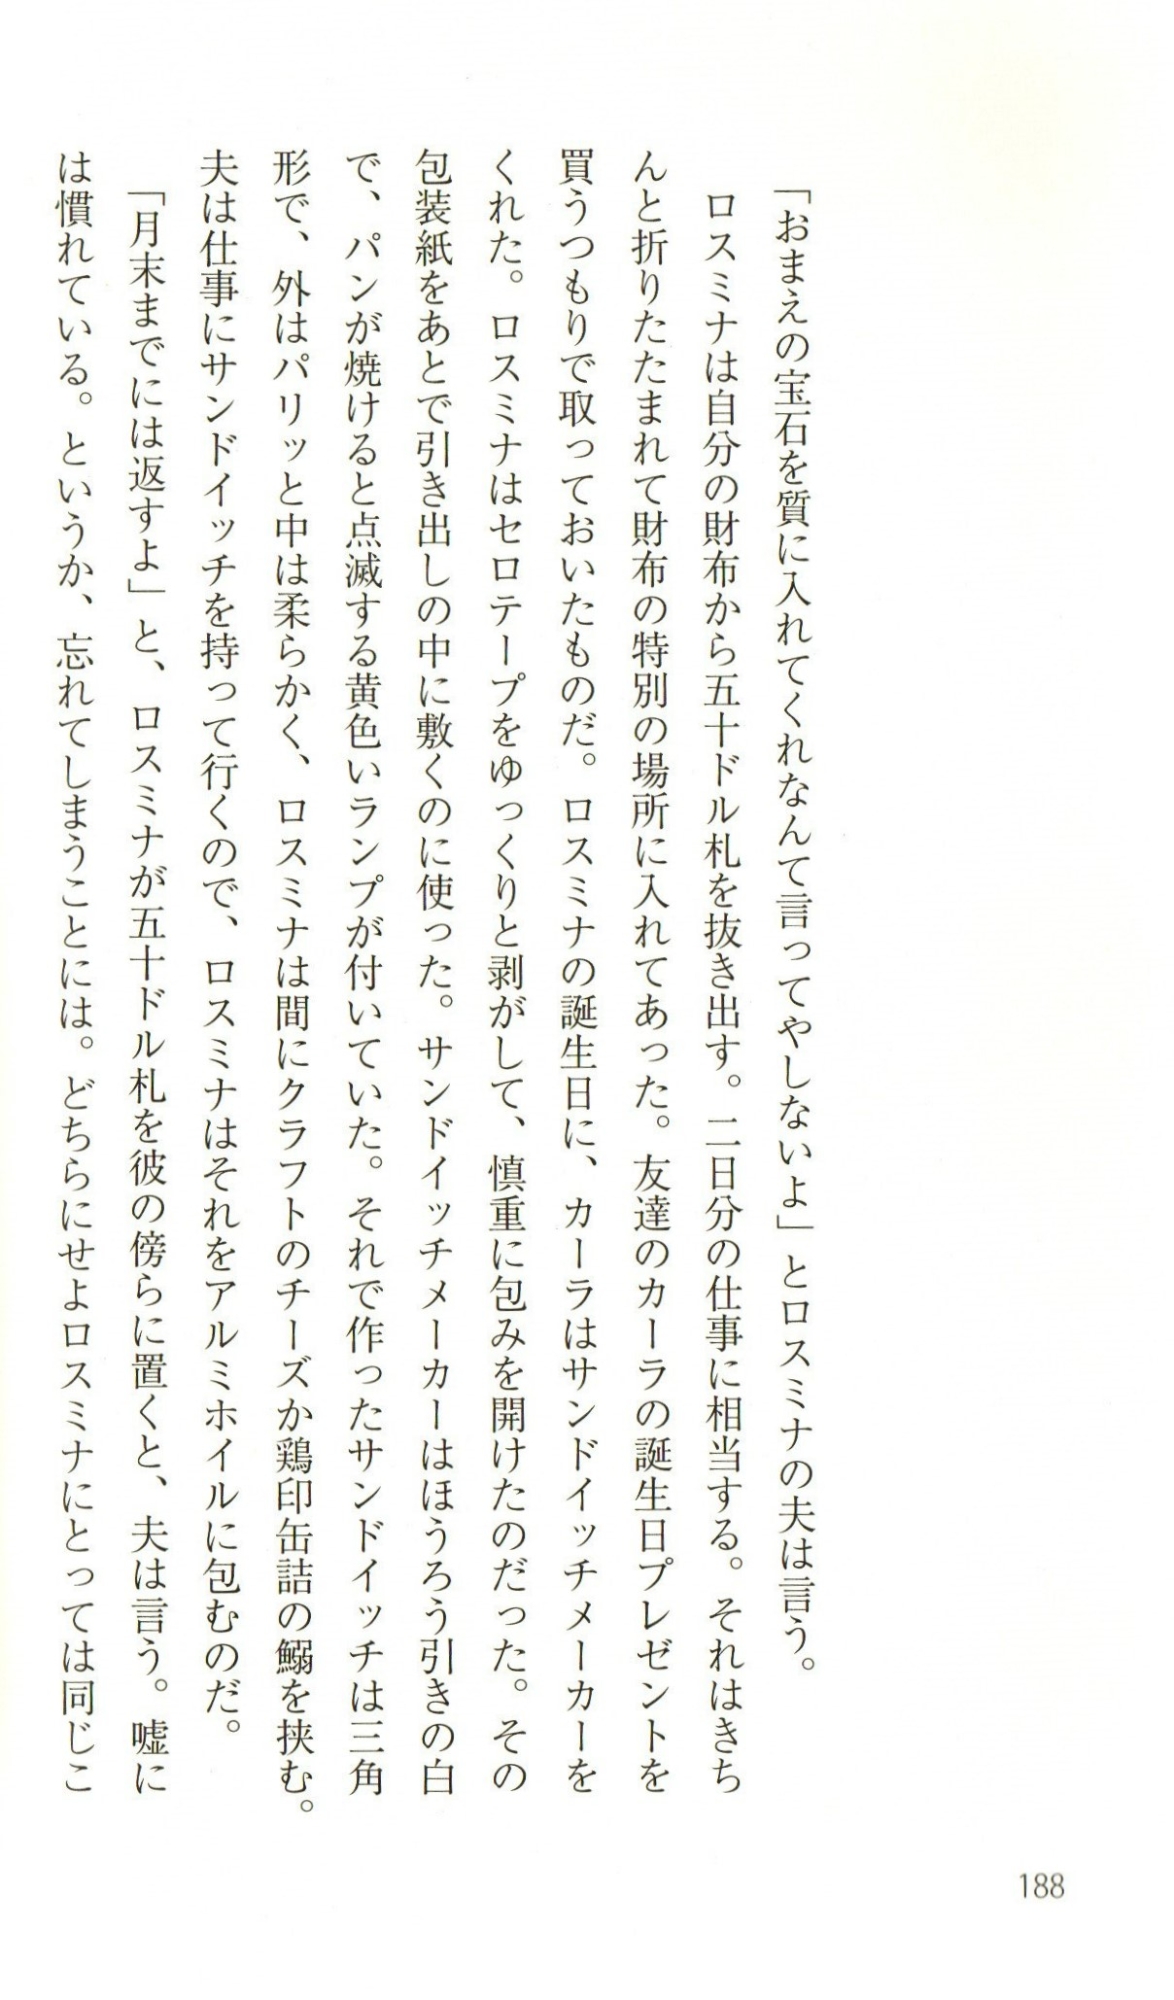 「おまえの宝石を質に入れてくれなんて言ってやしないよ」とロスミナの夫は言う。
ロスミナは自分の財布から五十ドル札を抜き出す。二日分の仕事に相当する。それはきち
んと折りたたまれて財布の特別の場所に入れてあった。友達のカーラの誕生日プレゼントを
買うつもりで取っておいたものだ。ロスミナの誕生日に、カーラはサンドイッチメーカーを
くれた。ロスミナはセロテープをゆっくりと剥がして、慎重に包みを開けたのだった。その
包装紙をあとで引き出しの中に敷くのに使った。サンドイッチメーカーはほうろう引きの白
で、パンが焼けると点滅する黄色いランプが付いていた。それで作ったサンドイッチは三角
形で、外はパリッと中は柔らかく、ロスミナは間にクラフトのチーズか鶏印缶詰の鰯を挟む。
夫は仕事にサンドイッチを持って行くので、ロスミナはそれをアルミホイルに包むのだ。
「月末までには返すよ」と、ロスミナが五十ドル札を彼の傍らに置くと、夫は言う。嘘に
は慣れている。というか、忘れてしまうことには。どちらにせよロスミナにとっては同じこ
188